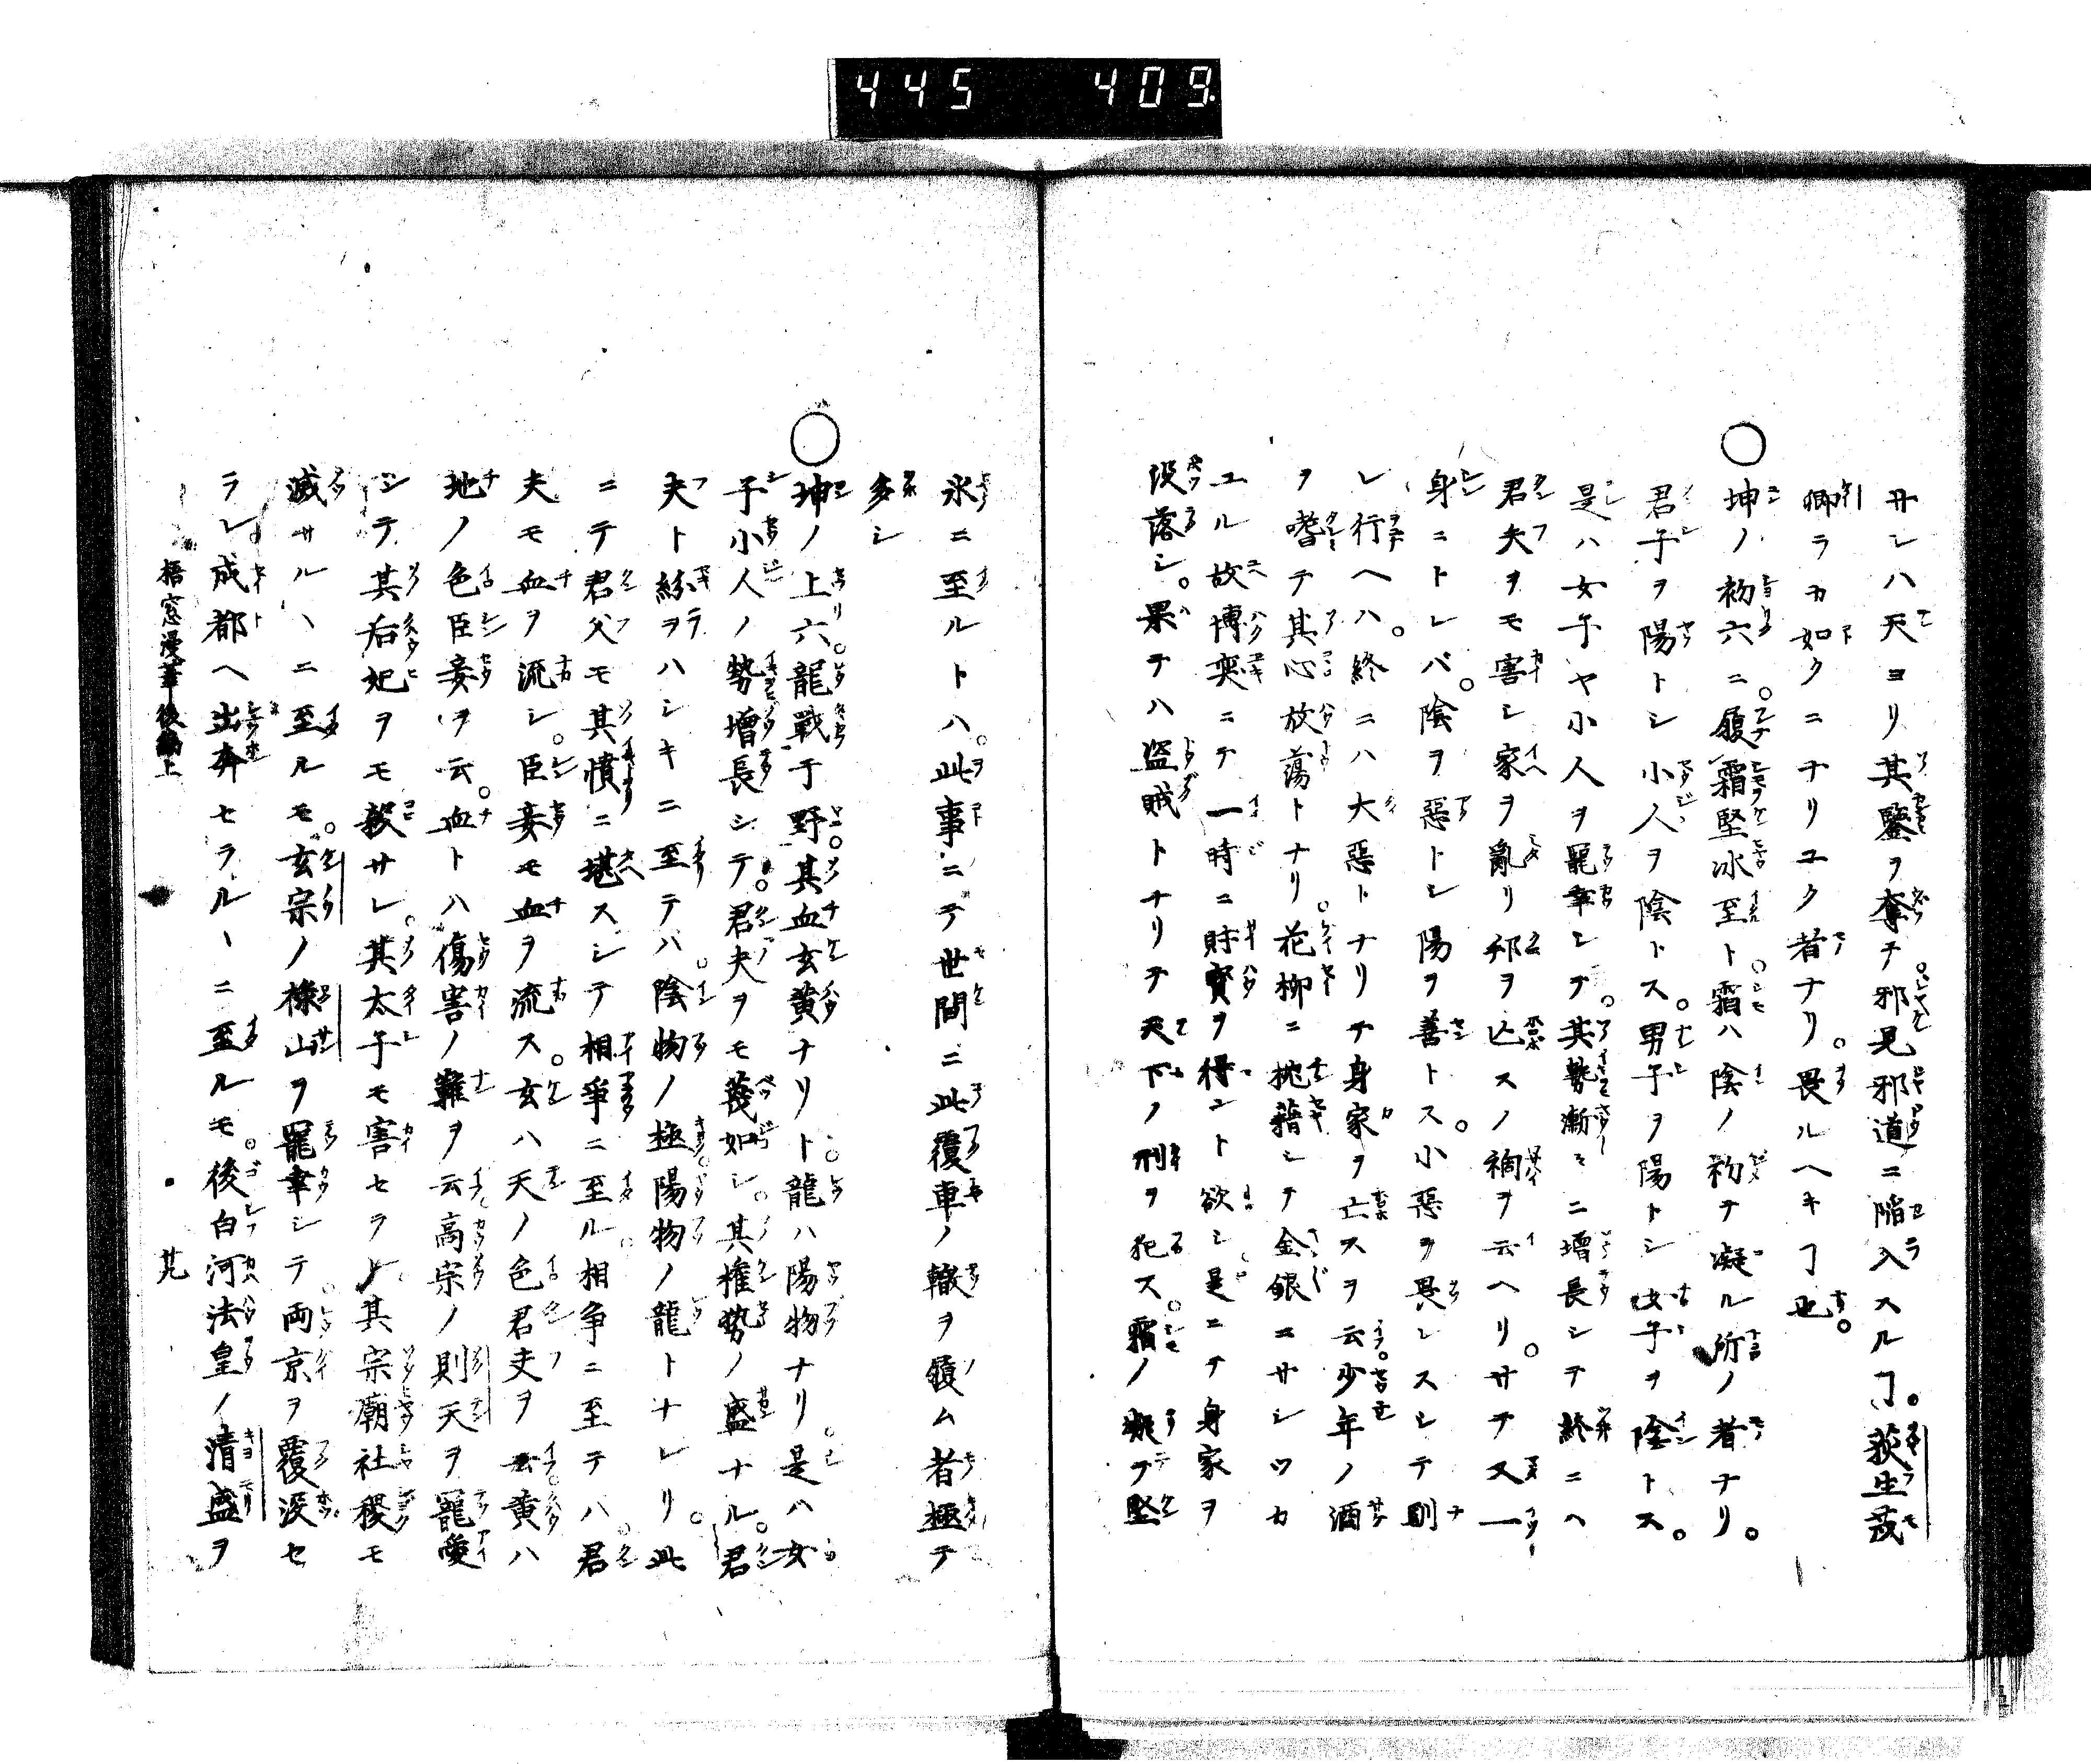 445 409.
サシハ天ヨリ其鑒ヲ奪テ邪見邪道ニ陥入スルヿ。荻生茂
卿ラカ如クニナリユク者ナリ。畏ルヘキヿ也。
○坤ノ初六ニ。履霜堅冰至ト。霜ハ陰ノ初テ凝ル所ノ者ナリ。
君子ヲ陽トシ小人ヲ陰トス。男子ヲ陽トシ女子ヲ陰トス。
是ハ女子ヤ小人ヲ寵幸シテ。其勢漸々ニ増長シテ終ニハ
君夫ヲモ害シ家ヲ亂リ邦ヲ亡スノ禍ヲ云ヘリ。サテ又一
身ニトレバ。陰ヲ惡トシ陽ヲ善トス。小惡ヲ畏レスシテ則
レ行ヘハ。終ニハ大惡トナリテ身家ヲ亡スヲ云少年ノ酒
ヲ嗜テ其心放蕩トナリ。花柳ニ枕藉シテ金銀ニサシツカ
ユル故博奕ニテ一時ニ財寶ヲ得ント欲シ是ニテ身家ヲ
没落シ。果テハ盗賊トナリテ天下ノ刑ヲ犯ス。霜ノ凝テ堅
氷ニ至ルトハ。此事ニテ世間ニ此覆車ノ轍ヲ履ム者極テ
多シ
○坤ノ上六。龍戰于野。其血玄黄ナリト。龍ハ陽物ナリ。是ハ女
子小人ノ勢増長シテ。君夫ヲモ蔑如シ。其権勢ノ盛ナル。君
夫ト紛ラハシキニ至テハ。陰物ノ極陽物ノ龍トナレリ。此
ニテ君父モ其憤ニ堪スシテ相爭ニ至ル。相争ニ至テハ。君
夫モ血ヲ流シ。臣妾モ血ヲ流ス。玄ハ天ノ色君夫ヲ云。黄ハ
地ノ色臣妾ヲ云。血トハ傷害ノ難ヲ云。高宗ノ則天ヲ寵愛
シテ其后妃ヲモ殺サレ。其太子モ害セラレ。其宗廟社稷モ
滅サルヽニ至ルモ。玄宗ノ祿山ヲ寵幸シテ。両京ヲ覆没セ
ラレ成都ヘ出奔セラルヽニ至ルモ。後白河法皇ノ清盛ヲ
梧窓漫筆後編上
廿九